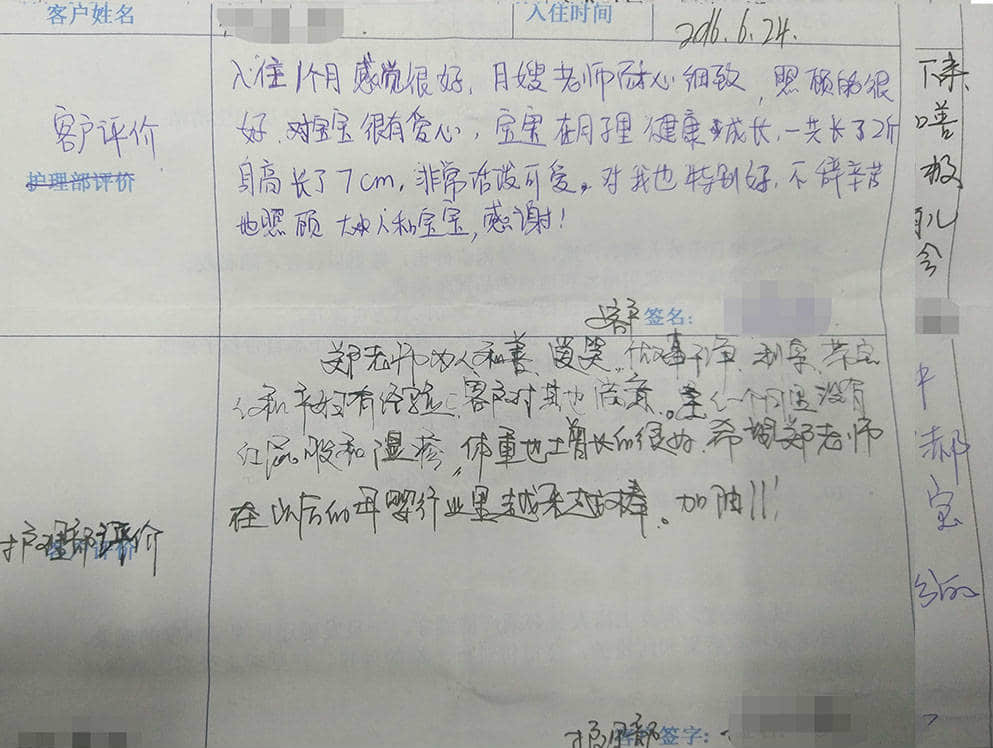 客户姓名 入住时间 2016.6.24.
客户评价
护理部评价
入住1个月感觉很好，月嫂老师耐心细致，照顾的很
好，对宝宝很有爱心，宝宝在月子里健康成长，一共长了2斤
身高长了7cm，非常活泼可爱。对我也特别好，不辞辛苦
地照顾大人和宝宝，感谢！
客户签名：
郑老师为人和善、爱笑、做事干净、利索、
有经验 客户对其也 满意。 一个 没有
红屁股和湿疹，体重也增长的很好，希望郑老师
在以后的母婴行业里越来越棒。加油！！！
护理部评价
护理部签字：
下来
嗜
极
会
中
郝
宝